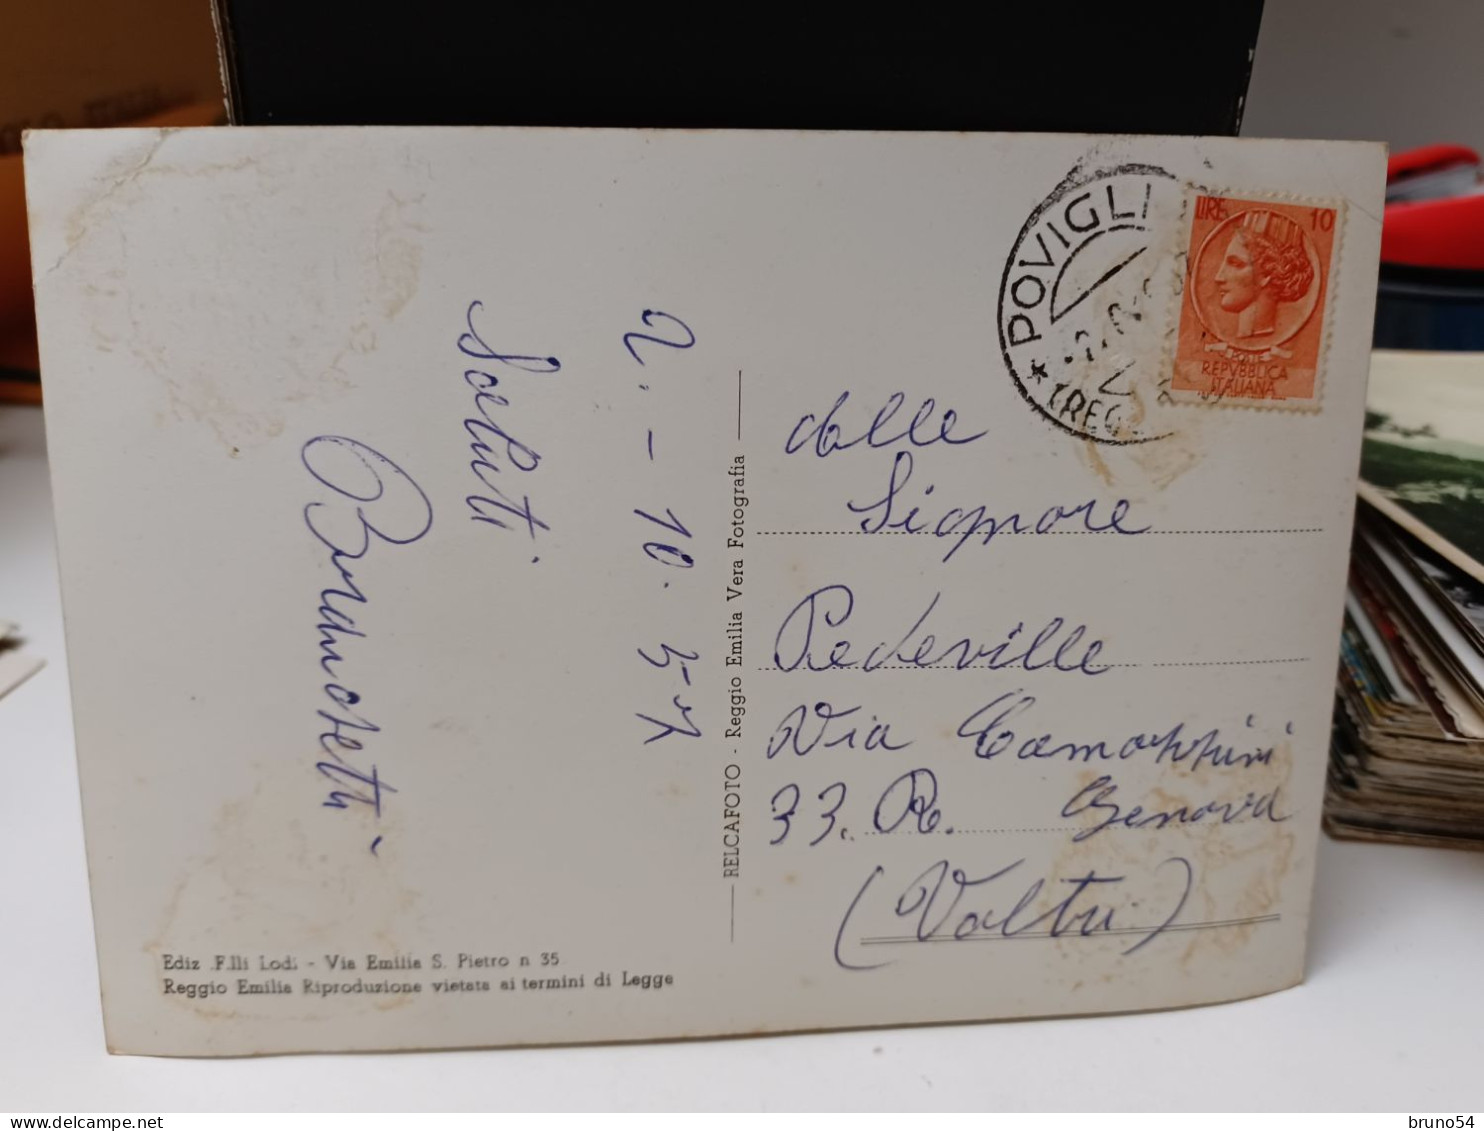 POVIGLI
(REG
LIRE 10
REPVBBLICA
ITALIANA
2. - 10. 57
Saluti
dalle
Signore
Pedeville
Via
33. R. Genova
(Voltri)
RELCAFOTO - Reggio Emilia Vera Fotografia
Ediz .F.lli Lodi - Via Emilia S. Pietro n 35
Reggio Emilia Riproduzione vietata ai termini di Legge
bruno54